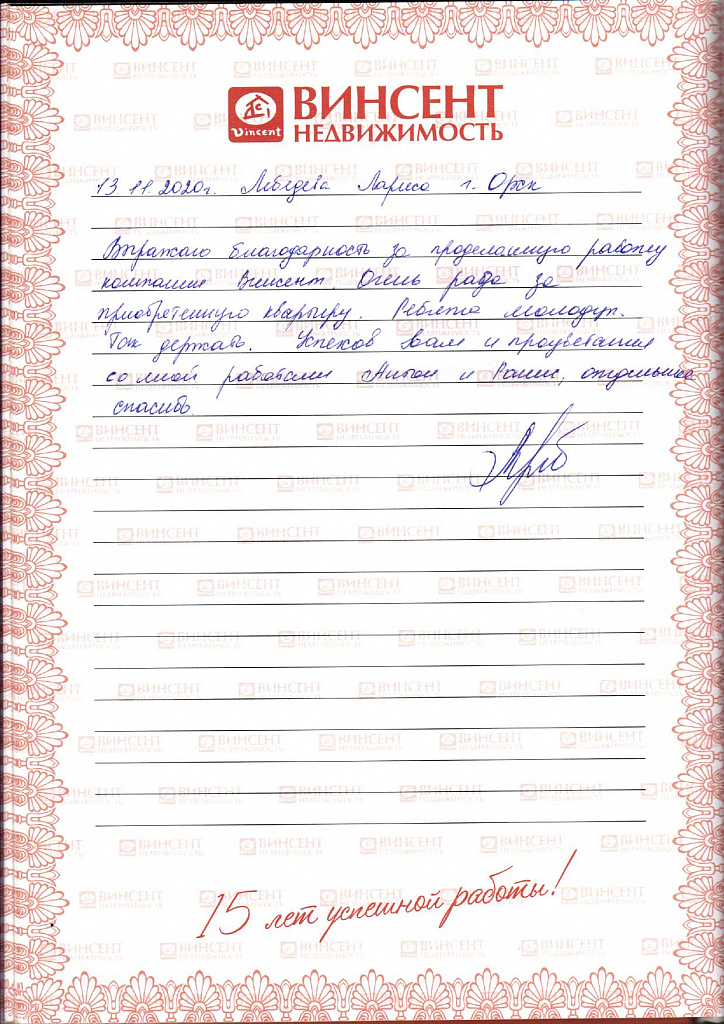 Vincent
ВИНСЕНТ
НЕДВИЖИМОСТЬ
13.11.2020г. Лебедева Лариса г. Орск
Выражаю благодарность за проделанную работу
компании Винсент Очень рада за
приобретенную квартиру. Ребята молодцы.
Так держать. Успехов Вам и процветания
со мной работали Антон и Раис, отдельное
спасибо.
15 лет успешной работы!